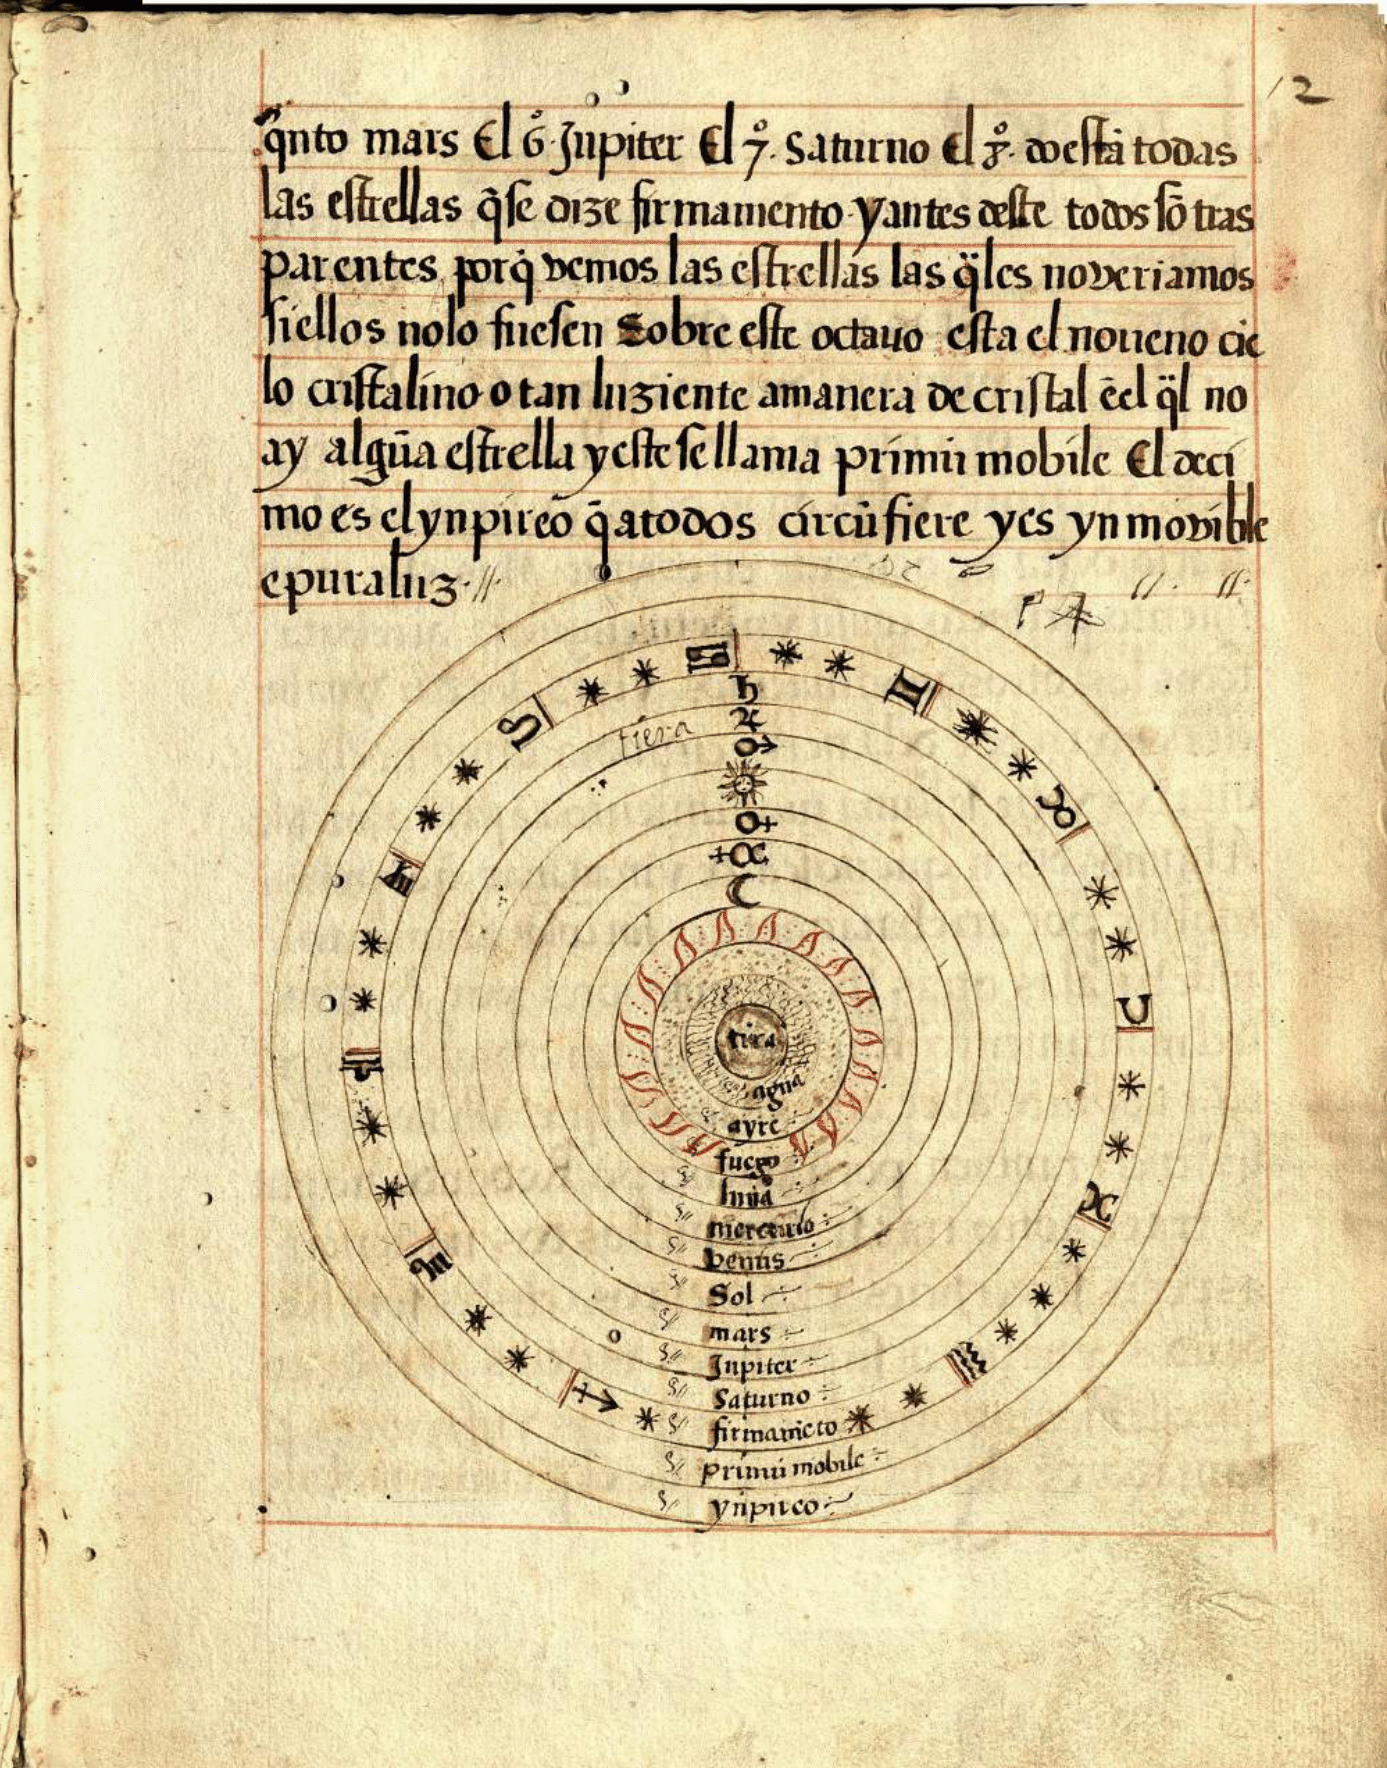 12
q̃nto mars El 6º Jupiter El 7º. Saturno El 8º. do estã todas
las estrellas q̃ se dize firmamento y antes deste todos sõ tras
parentes porq̃ vemos las estrellas las q̈les no veriamos
si ellos no lo fuesen Sobre este octauo esta el noueno cie
lo cristalino o tan luziente a manera de cristal ẽ el q̈l no
ay algũa estrella y este se llama primũ mobile El deci
mo es el ynpireo q̃ a todos circũfiere y es ynmovible
e pura luz //
tiera
♄
♃
♂
☉
♀
☿
☾
tiera
agua
ayre
fuego
luna
mercurio
venus
Sol
mars
Jupiter
Saturno
firmamẽto
primũ mobile
ynpireo